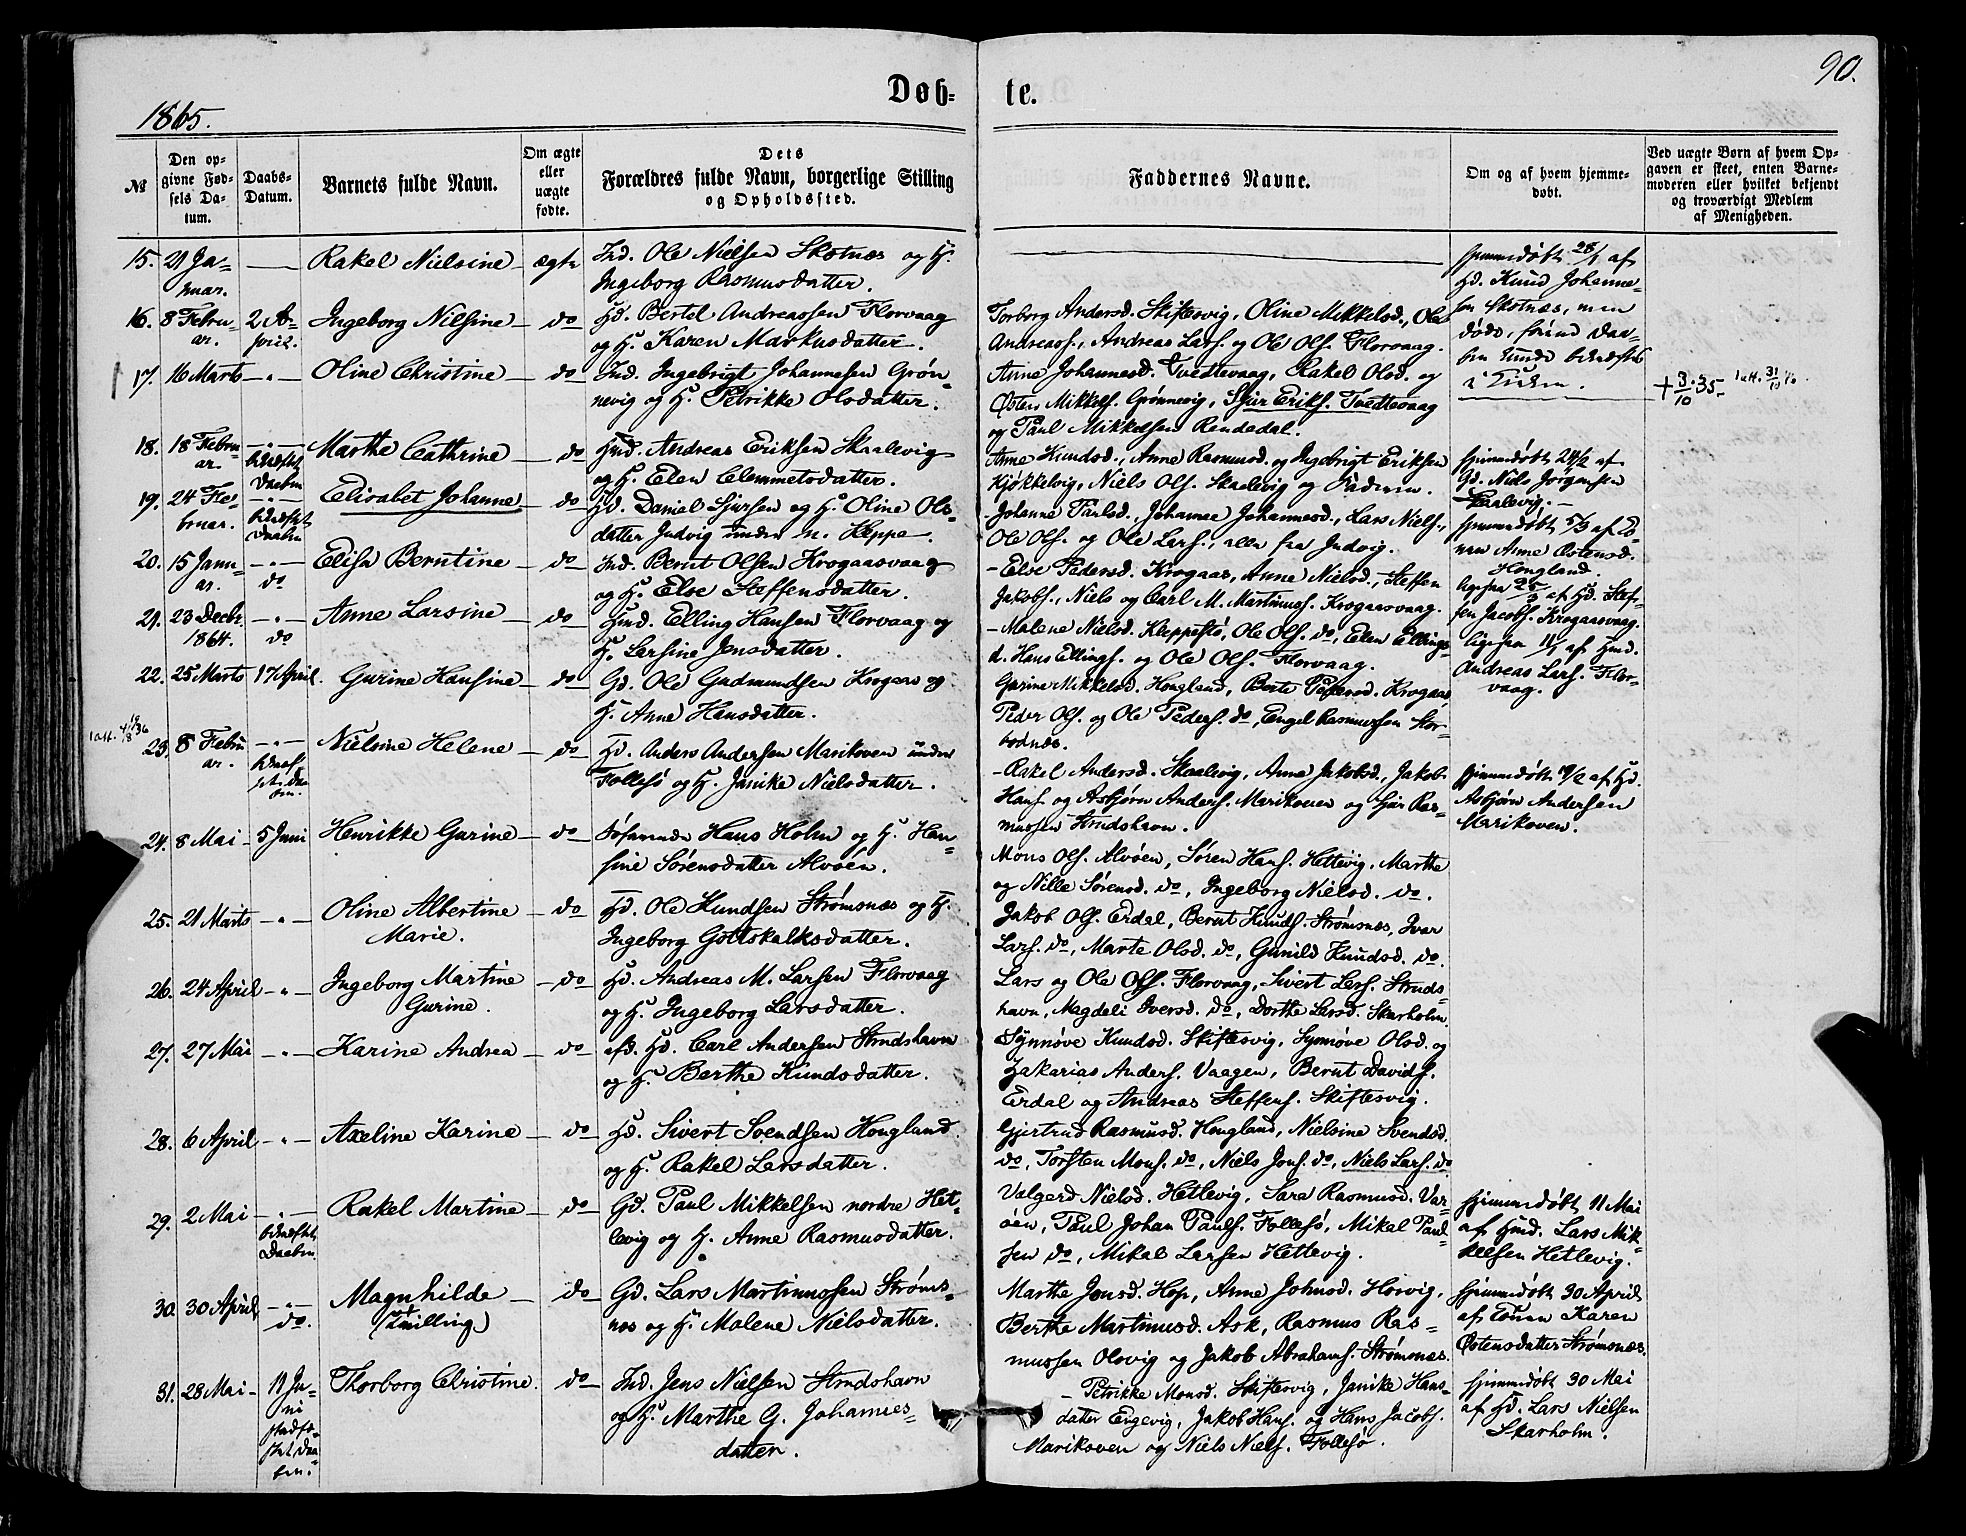 90.
Døb-
te.
1865.
№
Den op-
givne Fød-
sels Da-
tum.
Daabs-
Datum.
Barnets fulde Navn.
Om ægte
eller
uægte
fødte.
Dets
Forældres fulde Navn, borgerlige Stilling
og Opholdssted.
Faddernes Navne.
Om og af hvem hjemme-
døbt.
Ved uægte Børn af hvem Op-
gaven er skeet, enten Barne-
moderen eller hvilket bekjendt
og troværdigt Medlem
af Menigheden.
15. 21 Ja-
nuar.
Rakel Nielsine
ægte
Ind. Ole Nielsen Skotnæs og H.
Ingeborg Rasmusdatter.
hjemmedøbt 28/1 af
Hd. Knud Johanne-
sen Skotnæs, men
døde, forind Daa-
ben kunde bekræftes
i Kirken.
16. 8 Febru-
ar.
2 A-
pril.
Ingeborg Nilsine
do
Hd. Bertel Andreassen Florvaag
og H. Karen Markusdatter.
Torborg Andersd. Skiftesvig, Oline Mikkelsd., Ole
Andreass., Andreas Lars. og Ole Ols. Florvaag.
17. 16 Marts
Oline Christine
do
Ind. Ingebrigt Johannesen Grøn-
nevig og H. Petrikke Olsdatter.
Anne Johannesd. Tvedtevaag, Rakel Olsd. og
Østen Mikkels. Grønnevig, Sjur Eriks. Tvedtevaag
og Paul Mikkelsen Rendedal.
+ 3/10 35
1 att. 31/10
18. 18 Febru-
ar.
bekræftet
Daaben
Marthe Cathrine
do
Hmd. Andreas Eriksen Skaalevig
og H. Elen Clemmetsdatter.
Anne Knudsd., Anne Rasmusd. og Ingebrigt Eriksen
Kjøkkelvig, Niels Ols. Skaalevig og Faderen.
hjemmedøbt 24/2 af
Gd. Niels Jørgensen
Skaalevig.
19. 24 Fe-
bruar.
bekræftet
Daaben
Elisabet Johanne
do
Hd. Daniel Sjursen og H. Oline Ols-
datter Judvig under n. Kleppe.
Johanne Carlsd., Johanne Johannesd., Lars Niels.,
Ole Ols. og Ole Lars., alle fra Judvig.
hjemmedøbt 5/3 af Ko-
nen Anne Østensd.
Hougland.
20. 15 Janu-
ar.
do
Elisa Berntine
do
Ind. Bernt Olsen Krogaasvaag
og H. Else Steffensdatter.
Else Pedersd. Krogaas, Anne Nielsd., Steffen
Jakobs., Niels og Carl M. Martinuss. Krogaasvaag.
ligesaa 25/3 af Hd. Stef-
fen Jacobs. Krogaasvaag.
21. 23 Decbr.
1864.
do
Anne Larsine
do
Hmd. Elling Hansen Florvaag og
H. Larsine Jensdatter.
Malene Nielsd. Kleppestø, Ole Ols. do, Elen Ellings-
d. Hans Ellings. og Ole Ols. Florvaag.
ligesaa 11/1 af Hmd.
Andreas Lars. Flor-
vaag.
22. 25 Marts
17 April.
Gurine Hansine
do
Gd. Ole Gudmundsen Krogaas og
H. Anne Hansdatter.
Gurine Mikkelsd. Hougland, Berte Pedersd. Krogaas,
Peder Ols. og Ole Peders. do, Engel Rasmussen Stor-
bodnæs.
1 att.
23. 8 Febru-
ar.
bekræf-
tet Daa-
ben.
Nielsine Helene
do
Hd. Anders Andersen Marikoven under
Follesø og H. Janike Nielsdatter.
Rakel Andersd. Skaalevig, Anne Jakobsd., Jakob
Hans. og Asbjørn Anders. Marikoven og Sjur Ras-
mussen Strudshavn.
hjemmedøbt 19/2 af Hd.
Asbjørn Andersen
Marikoven.
24. 8 Mai
5 Juni
Henrikke Gurine
do
Søfarende Hans Holm og H. Han-
sine Sørensdatter Alvøen.
Mons Ols. Alvøen, Søren Hans. Hetlevig, Marthe
og Nille Sørensd. do, Ingeborg Nielsd. do.
25. 21 Marts
Oline Albertine
Marie.
do
Hd. Ole Knudsen Strømsnæs og H.
Ingeborg Gottskalksdatter.
Jakob Ols. Erdal, Bernt Knuds. Strømsnæs, Ivar
Lars. do, Marte Olsd. do, Gunild Knudsd. do.
26. 24 April
Ingeborg Martine
Gurine.
do
Hd. Andreas M. Larsen Florvaag
og H. Ingeborg Larsdatter.
Lars og Ole Ols. Florvaag, Sivert Lars. Struds-
havn, Magdeli Iversd. do, Dorthe Larsd. Skarholm.
27. 27 Mai
Karine Andrea
do
afd. Hd. Carl Andersen Strudshavn
og H. Berthe Knudsdatter.
Synnøve Knudsd. Skiftesvig, Synnøve Olsd. og
Zakarias Anders. Vaagen, Bernt Davids.
Erdal og Andreas Steffens. Skiftesvig.
28. 6 April
Axeline Karine
do
Hd. Sivert Svendsen Hougland
og H. Rakel Larsdatter.
Gjertrud Rasmusd. Hougland, Nielsine Svendsd.
do, Torsten Mons. do, Niels Jons. do, Niels Lars. do
29. 2 Mai
bekræftet
Daaben
Rakel Martine
do
Gd. Paul Mikkelsen nordre Het-
levig og H. Anne Rasmusdatter.
Valgerd Nielsd. Hetlevig, Sara Rasmusd. Var-
øen, Paul Johan Pauls. Follesø, Mikal Paul-
sen do, Mikal Larsen Hetlevig.
hjemmedøbt 11 Mai
af Hmd. Lars Mik-
kelsen Hetlevig.
30. 30 April
do.
Magnhilde
(Tvilling)
do
Gd. Lars Martinussen Strøms-
næs og H. Malene Nielsdatter.
Marthe Jonsd. Hop, Anne Johnsd. Horvig,
Berthe Martinusd. Ask, Rasmus Ras-
mussen Olsvig og Jakob Abrahams. Strømsnæs.
hjemmedøbt 30 April
af Konen Karen
Østensdatter Strømsnæs.
31. 28 Mai
11 Ju-
ni
stadfæ-
stet Daa-
ben.
Thorborg Christine.
do
Ind. Jens Nielsen Strudshavn
og H. Marthe G. Johannes-
datter.
Petrikke Monsd. Skiftesvig, Janike Hans-
datter Engevig, Jakob Hans. og Hans Jacobs.
Marikoven og Niels Niels. Follesø.
hjemmedøbt 30 Mai
af Hd. Lars Nielsen
Skarholm.